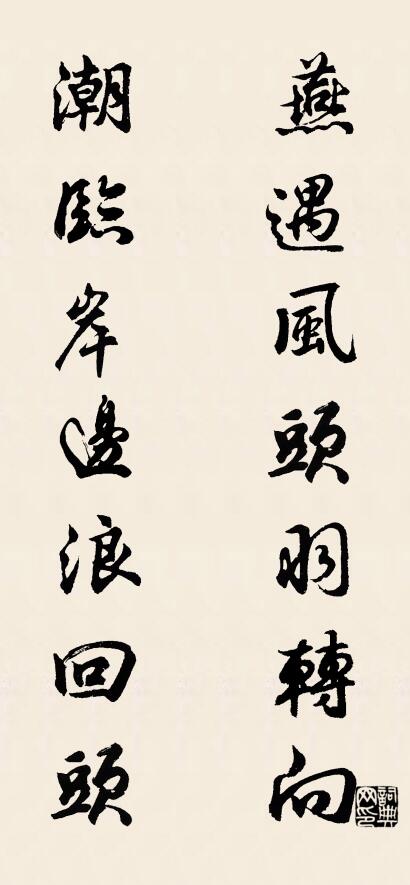 燕遇風頭羽轉向
潮臨岸邊浪回頭
詞典网印